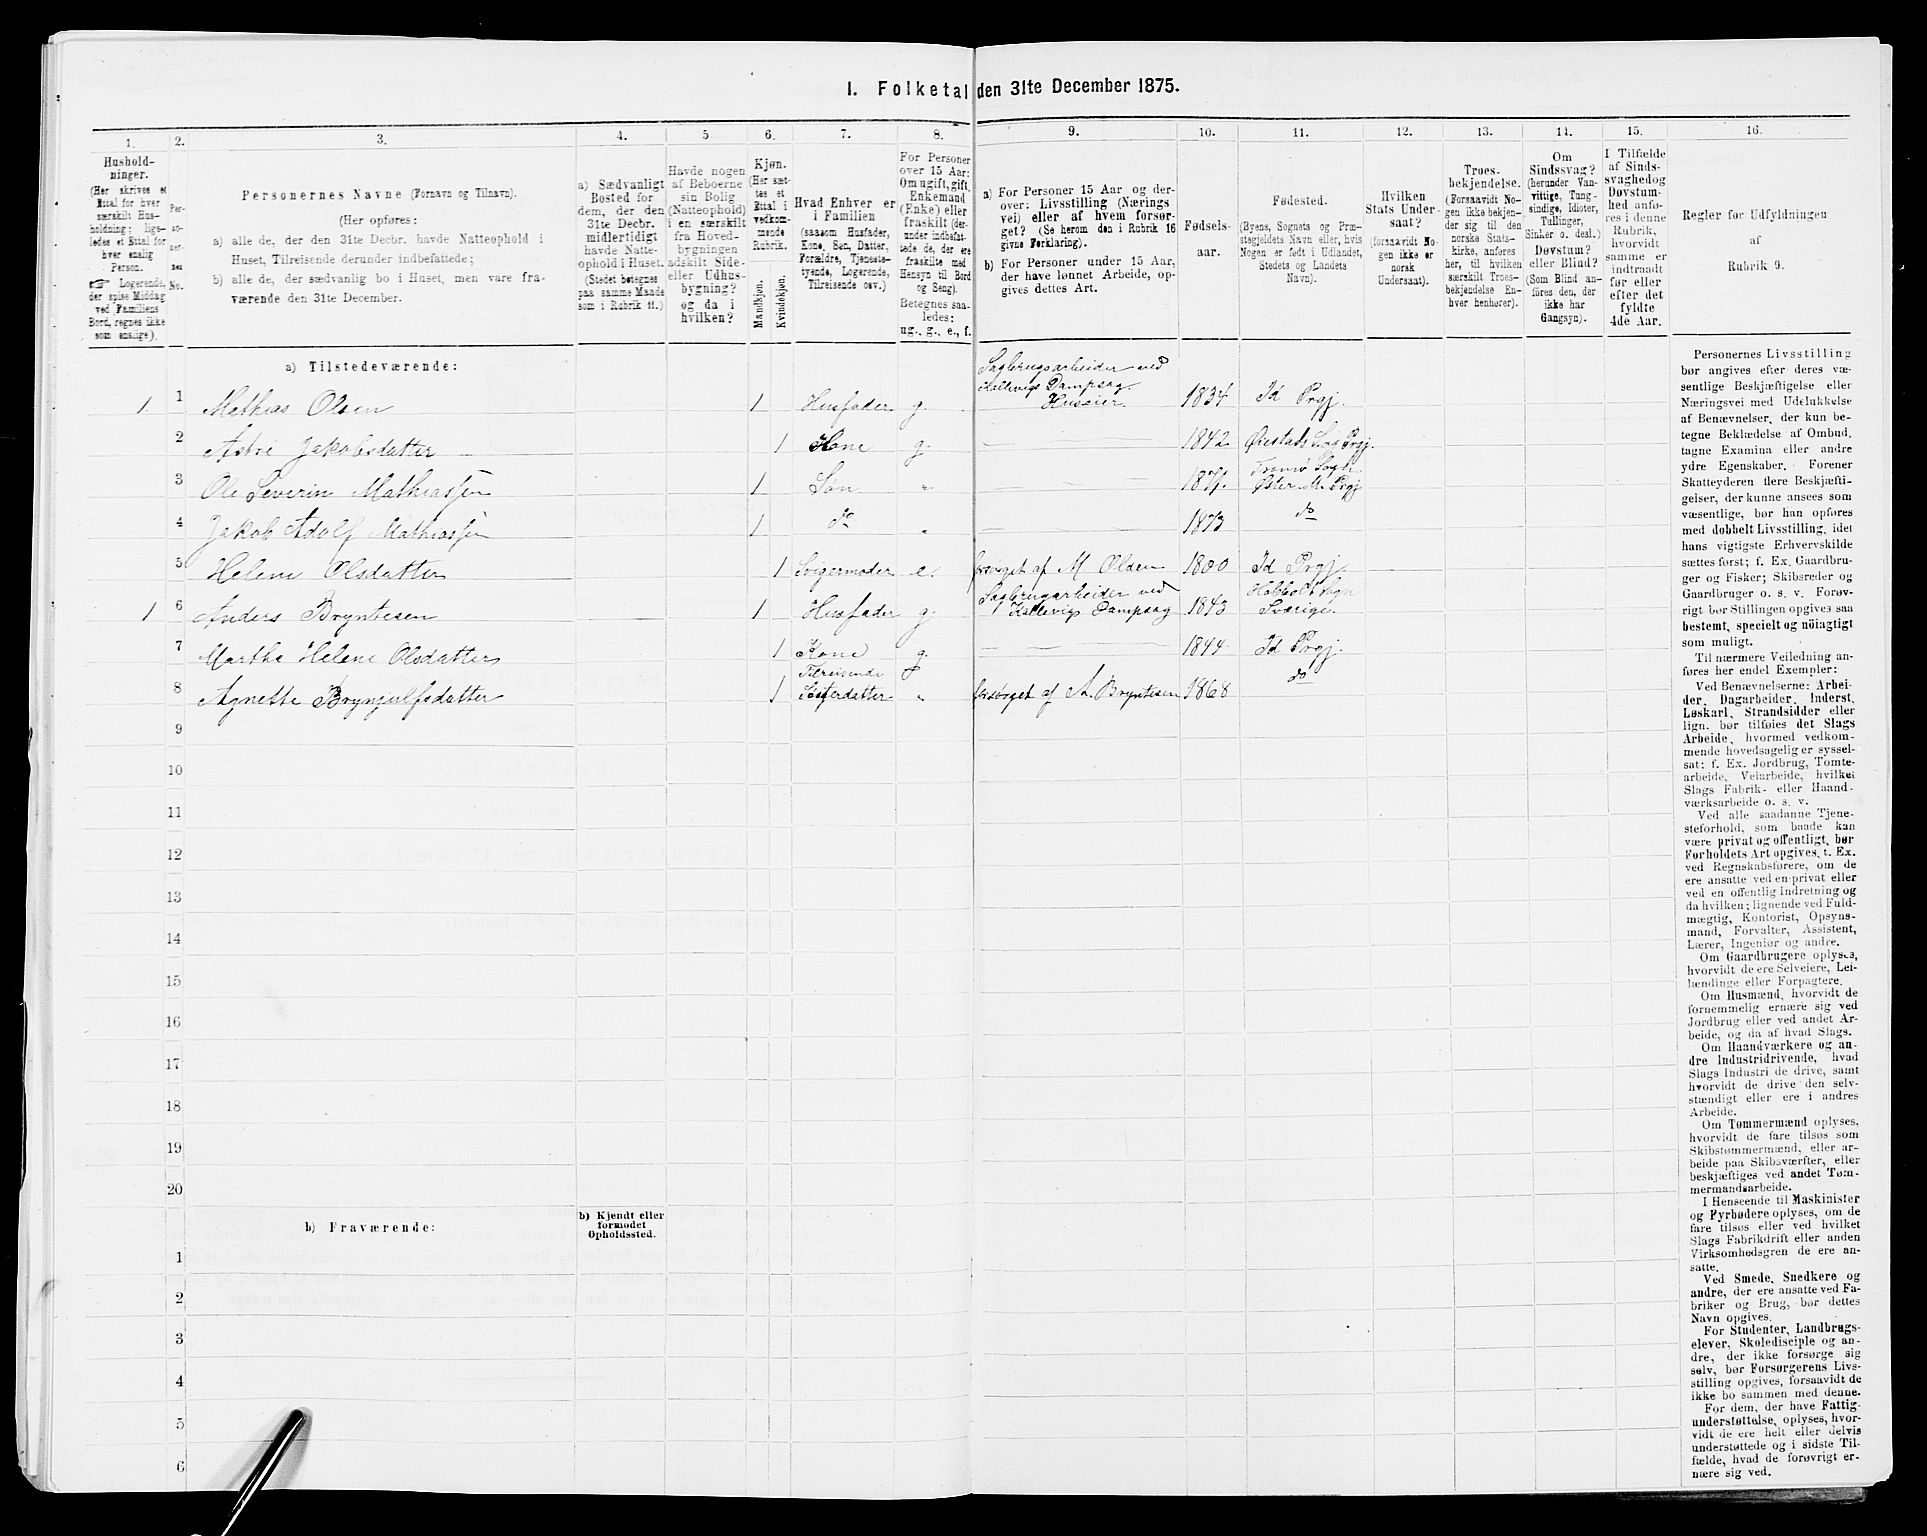 I. Folketal den 31te December 1875.
1. 2. 3. 4. 5. 6. 7. 8. 9. 10. 11. 12. 13. 14. 15. 16.
Hushold-
ninger.
(Her skrives et
Ettal for hver
særskilt Hus-
holdning; lige-
ledes et Ettal for
hver enslig
Person.
☞ Logerende,
der spise Middag
ved Familiens
Bord, regnes ikke
som enslige).
Per-
so-
ner-
nes
No.
Personernes Navne (Fornavn og Tilnavn).
(Her opføres:
a) alle de, der den 31te Decbr. havde Natteophold i
Huset, Tilreisende derunder indbefattede;
b) alle de, der sædvanlig bo i Huset, men vare fra-
værende den 31te December.
a) Sædvanligt
Bosted for
dem, der den
31te Decbr.
midlertidigt
havde Natte-
ophold i Huset.
(Stedet betegnes
paa samme Maade
som i Rubrik 11.)
Havde nogen
af Beboerne
sin Bolig
(Natteophold)
i en særskilt
fra Hoved-
bygningen
adskilt Side-
eller Udhus-
bygning?
og da i
hvilken?
Kjøn.
(Her sæt-
tes et
Ettal i
vedkom-
mende
Rubrik.
Mandkjøn.
Kvindekjøn.
Hvad Enhver er
i Familien
(saasom Husfader,
Kone, Søn, Datter,
Forældre, Tjeneste-
tyende, Logerende,
Tilreisende osv.)
For Personer
over 15 Aar:
Om ugift, gift,
Enkemand
(Enke) eller
fraskilt (der-
under indbefat-
tede de, der ere
fraskilte med
Hensyn til Bord
og Seng).
Betegnes saa-
ledes:
ug., g., e., f.
a) For Personer 15 Aar og der-
over: Livsstilling (Nærings
vei) eller af hvem forsør-
get? (Se herom den i Rubrik 16
givne Forklaring).
b) For Personer under 15 Aar,
der have lønnet Arbeide, op-
gives dettes Art.
Fødsels-
aar.
Fødested.
(Byens, Sognets og Præ-
stegjeldets Navn eller, hvis
Nogen er født i Udlandet,
Stedets og Landets
Navn).
Hvilken
Stats Under-
saat?
(forsaavidt No-
gen ikke er
norsk
Undersaat).
Troes-
bekjendelse.
(Forsaavidt No-
gen ikke bekjen-
der sig til den
norske Stats-
kirke, anføres
her, til hvilken
særskilt Troes-
bekjendelse En-
hver henhører).
Om
Sindssvag?
(herunder Van-
vittige, Tung-
sindige, Idioter,
Tullinger,
Sinker o. desl.)
Døvstum?
eller Blind?
(Som Blind an-
føres den, der
ikke har
Gangsyn).
I Tilfælde
af Sinds-
svaghed og
Døvstum-
hed anfø-
res i denne
Rubrik,
hvorvidt
samme er
indtraadt
før eller
efter det
fyldte
4de Aar.
Regler for Udfyldningen
af
Rubrik 9.
a) Tilstedeværende:
1 1 Mathias Olsen 1 Husfader g. Sagbrugsarbeider ved Kallevigs Dampsag. Huseier. 1834 Id Prgj.
2 Astri Jakobsdatter 1 Kone g. — 1842 Øiestads Sog Prgj.
3 Ole Severin Mathiassen 1 Søn " — 1871. Tromø Sogn Øster M. Prgj
4 Jakob Adolf Mathiassen 1 do " — 1873 do
5 Helene Olsdatter 1 Svigermoder e. forsørget af M Olsen 1800 Id Prgj.
1 6 Anders Bryntesen 1 Husfader g. Sagbrugarbeider ved Kallevigs Dampsag 1843 Sogn Sverige.
7 Marthe Helene Olsdatter 1 Kone g. — 1844 Id Prgj.
8 Agnette Brynjulfsdatter 1 Tilreisende Søsterdatter " forsørget af A. Bryntesen 1868 do
9
10
11
12
13
14
15
16
17
18
19
20
b) Fraværende:
b) Kjendt eller
formodet
Opholdssted.
1
2
3
4
5
6
Personernes Livsstilling
bør angives efter deres væ-
sentlige Beskjæftigelse eller
Næringsvei med Udelukkelse
af Benævnelser, der kun be-
tegne Beklædelse af Ombud,
tagne Examina eller andre
ydre Egenskaber. Forener
Skatteyderen flere Beskjæfti-
gelser, der kunne ansees som
væsentlige, bør han opføres
med dobbelt Livsstilling, idet
hans vigtigste Erhvervskilde
sættes først; f. Ex. Gaardbru-
ger og Fisker; Skibsreder og
Gaardbruger o. s. v. Forøv-
rigt bør Stillingen opgives saa
bestemt, specielt og nøiagtigt
som muligt.
Til nærmere Veiledning an-
føres her endel Exempler:
Ved Benævnelserne: Arbei-
der, Dagarbeider, Inderst,
Løskarl, Strandsidder eller
lign. bør tilføies det Slags
Arbeide, hvormed vedkom-
mende hovedsagelig er syssel-
sat; f. Ex. Jordbrug, Tomte-
arbeide, Veiarbeide, hvilket
Slags Fabrik- eller Haand-
værksarbeide o. s. v.
Ved alle saadanne Tjene-
steforhold, som baade kan
være privat og offentligt, bør
Forholdets Art opgives, t. Ex.
ved Regnskabsførere, om de
ere ansatte ved en privat eller
ved en offentlig Indretning og
da hvilken; lignende ved Fuld-
mægtig, Kontorist, Opsyns-
mand, Forvalter, Assistent,
Lærer, Ingeniør og andre.
Om Gaardbrugere oplyses,
hvorvidt de ere Selveiere, Lei-
lændinge eller Forpagtere.
Om Husmænd, hvorvidt de
fornemmelig ernære sig ved
Jordbrug eller ved andet Ar-
beide, og da af hvad Slags.
Om Haandværkere og an-
dre Industridrivende, hvad
Slags Industri de drive, samt
hvorvidt de drive den selv-
stændigt eller ere i andres
Arbeide.
Om Tømmermænd oplyses,
hvorvidt de fare tilsøs som
Skibstømmermænd, eller ar-
beide paa Skibsværfter, eller
beskjæftiges ved andet Tøm-
mermandsarbeide.
I Henseende til Maskinister
og Fyrbødere oplyses, om de
fare tilsøs eller ved hvilket
Slags Fabrikdrift eller anden
Virksomhedsgren de ere an-
satte.
Ved Smede, Snedkere og
andre, der ere ansatte ved Fa-
briker og Brug, bør dettes
Navn opgives.
For Studenter, Landbrugs-
elever, Skoledisciple og an-
dre, der ikke forsørge sig
selv, bør Forsørgerens Livs-
stilling opgives, forsaavidt de
ikke bo sammen med denne.
For dem, der have Fattig-
understøttelse, oplyses, hvor-
vidt de ere helt eller delvis
understøttede og i sidste Til-
fælde, hvad de forøvrigt er-
nære sig ved.